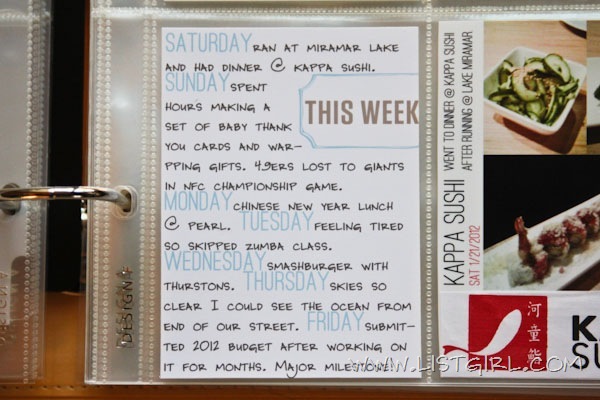 SATURDAY RAN AT MIRAMAR LAKE
AND HAD DINNER @ KAPPA SUSHI.
SUNDAY SPENT
HOURS MAKING A
SET OF BABY THANK
YOU CARDS AND WAR-
PPING GIFTS. 49ERS LOST TO GIANTS
IN NFC CHAMPIONSHIP GAME.
MONDAY CHINESE NEW YEAR LUNCH
@ PEARL. TUESDAY FEELING TIRED
SO SKIPPED ZUMBA CLASS.
WEDNESDAY SMASHBURGER WITH
THURSTONS. THURSDAY SKIES SO
CLEAR I COULD SEE THE OCEAN FROM
END OF OUR STREET. FRIDAY SUBMIT-
TED 2012 BUDGET AFTER WORKING ON
IT FOR MONTHS. MAJOR MILESTONE!
THIS WEEK
KAPPA SUSHI
SAT 1/21/2012
WENT TO DINNER @ KAPPA SUSHI
AFTER RUNNING @ LAKE MIRAMAR
河童鮨
SU
DESIGN A
WWW.LISTGIRL.COM